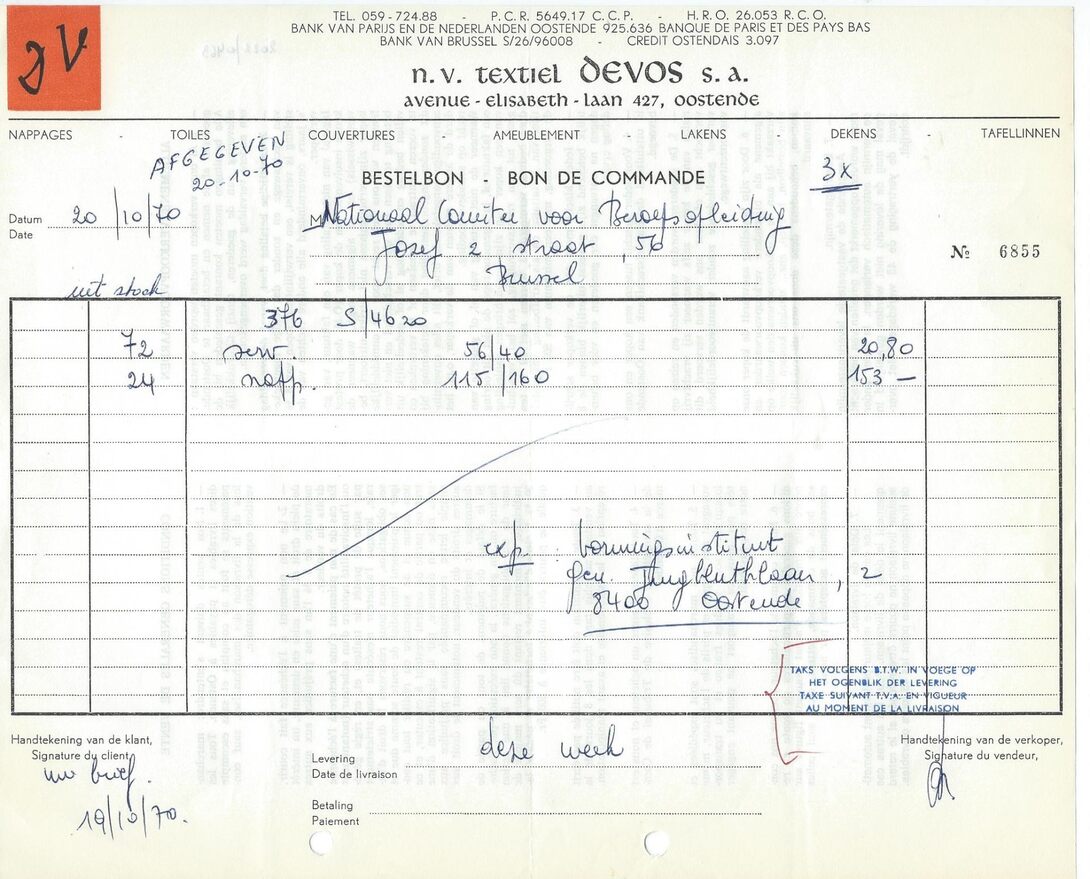 TEL. 059 - 724.88 - P.C.R. 5649.17 C.C.P. - H.R.O. 26.053 R.C.O.
BANK VAN PARIJS EN DE NEDERLANDEN OOSTENDE 925.636 BANQUE DE PARIS ET DES PAYS BAS
BANK VAN BRUSSEL S/26/96008 - CREDIT OSTENDAIS 3.097
n.v. textiel DEVOS s.a.
avenue - elisabeth - laan 427, oostende
NAPPAGES - TOILES - COUVERTURES - AMEUBLEMENT - LAKENS - DEKENS - TAFELLINNEN
AFGEGEVEN
20-10-70
3x
BESTELBON - BON DE COMMANDE
Datum
Date
20/10/70
M Nationaal Comitee voor Beroepsopleiding
Jozef 2 straat, 56
Brussel
No 6855
uit stock
376 S/4620
72 serv. 56/40 20,80
24 napp. 115/160 153 —
exp. Vormingsinstituut
Gen. Jungbluthlaan, 2
8400 Oostende
TAKS VOLGENS B.T.W. IN VOEGE OP
HET OGENBLIK DER LEVERING
TAXE SUIVANT T.V.A. EN VIGUEUR
AU MOMENT DE LA LIVRAISON
Handtekening van de klant,
Signature du client,
uw brief.
19/10/70.
Levering
Date de livraison
deze week
Betaling
Paiement
Handtekening van de verkoper,
Signature du vendeur,